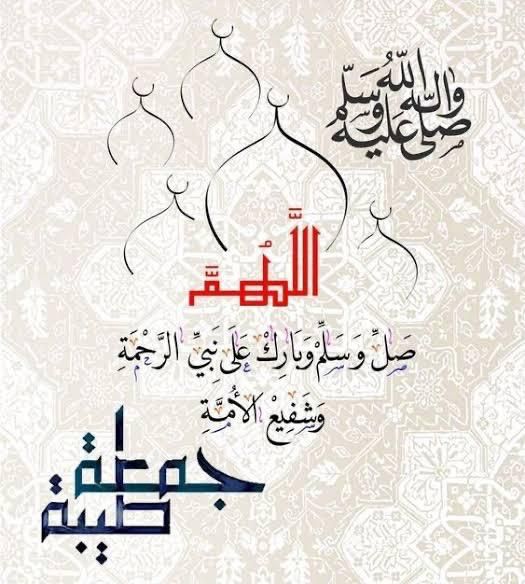 صلى الله عليه وآله وسلم
اللَّهُمَّ
صَلِّ وَسَلِّمْ وَبَارِكْ عَلَى نَبِيِّ الرَّحْمَةِ
وَشَفِيْعِ الأُمَّةِ
جمعة
طيبة